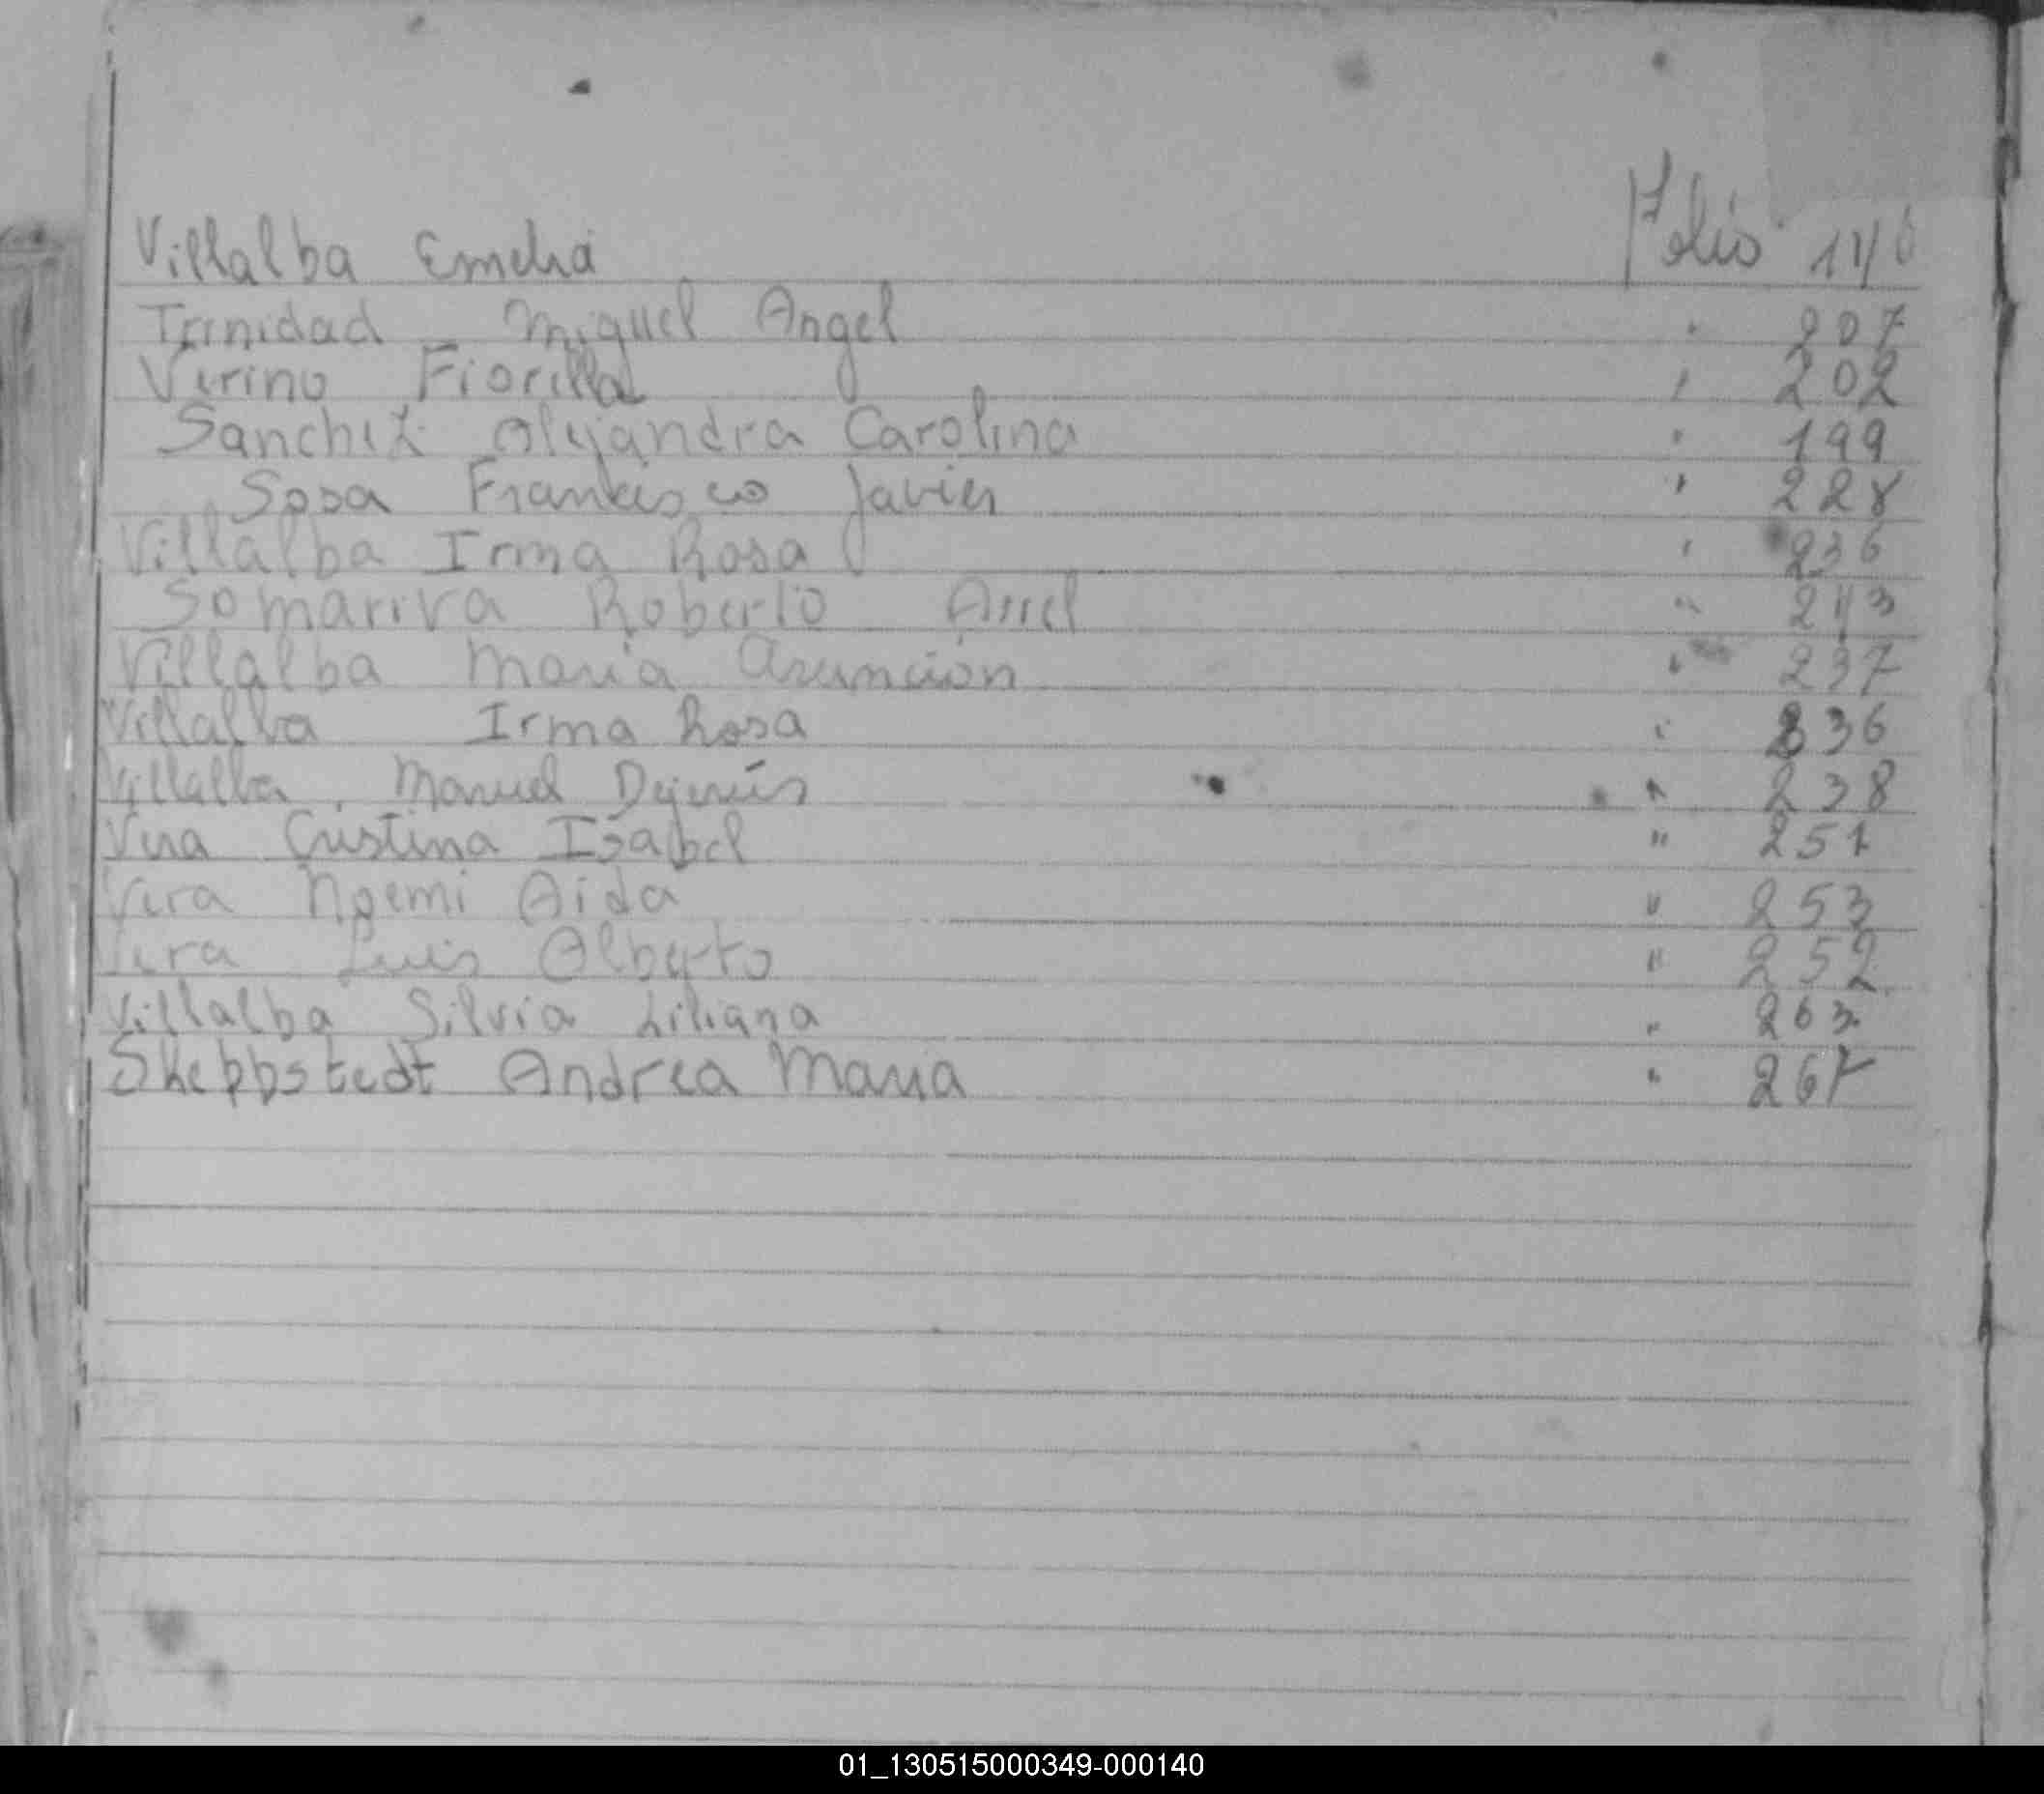 Villalba Emelia Folio 146
Trinidad Miguel Angel " 207
Verino Fiorilla " 202
Sanchez Alejandra Carolina " 199
Sosa Francisco Javier " 228
Villalba Irma Rosa " 236
Somariva Roberto Ariel " 243
Villalba Maria Asunción " 237
Villalba Irma Rosa " 236
Villalba, Manuel Dejesús " 238
Vera Cristina Isabel " 251
Vera Noemi Aida " 253
Vera Luis Alberto " 252
Villalba Silvia Liliana " 263
Skebbstedt Andrea Maria " 267
01_130515000349-000140